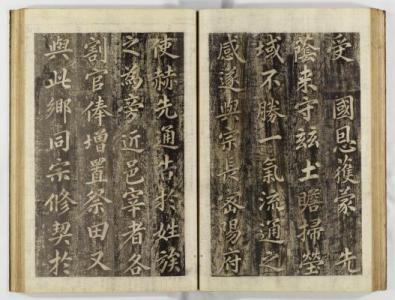 受　國恩獲蒙　先
蔭来守兹土瞻掃塋
域不勝一氣流通之
感遂與宗長密陽府
使赫先通告扵姓族
之為旁近邑宰者各
割官俸增置祭田又
與此鄉同宗修契於